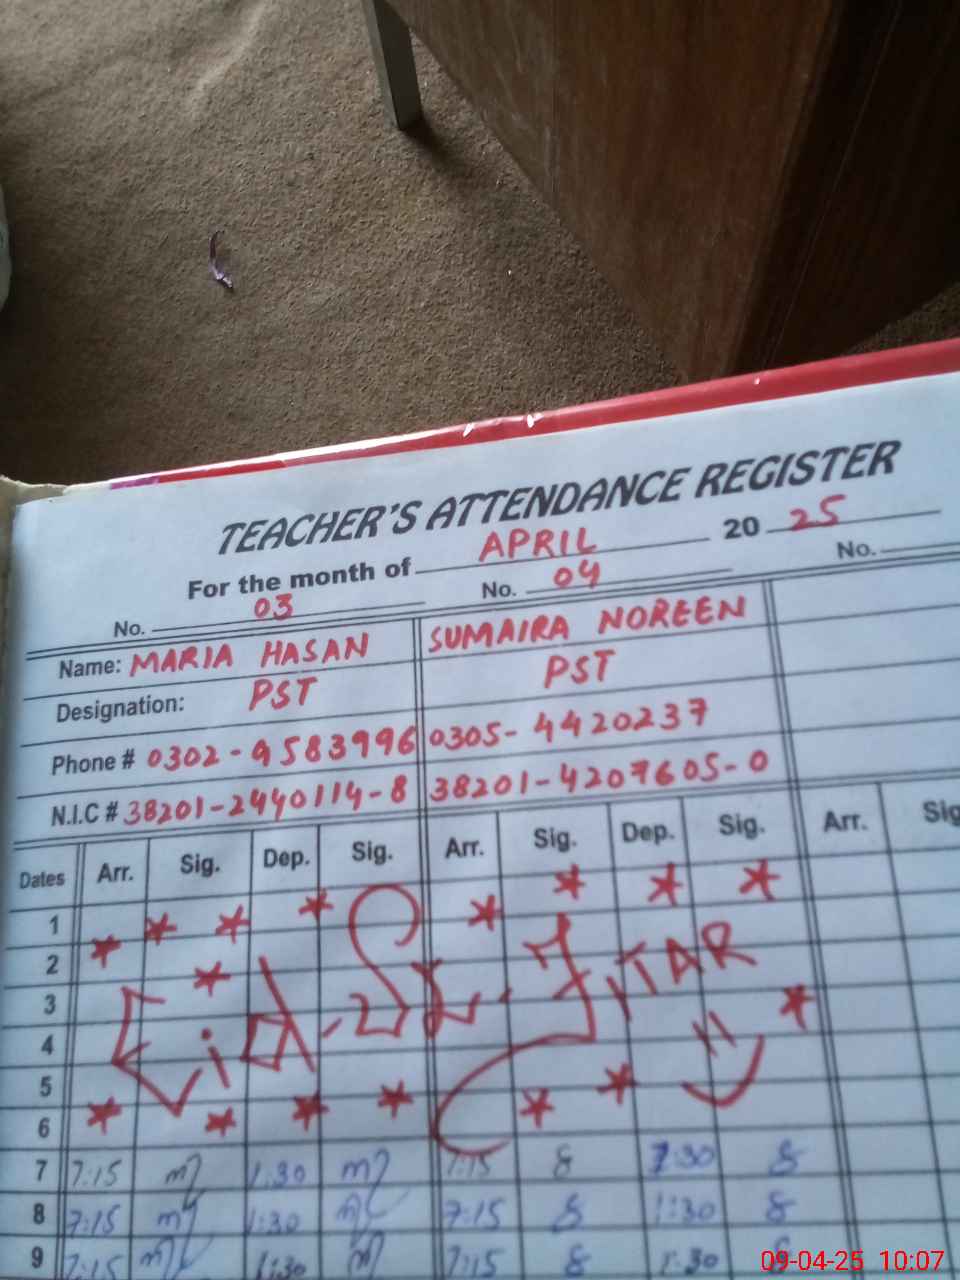 TEACHER'S ATTENDANCE REGISTER
For the month of APRIL 20 25
No. 03 No. 04 No.
Name: MARIA HASAN SUMAIRA NOREEN
Designation: PST PST
Phone # 0302-9583996 0305-4420237
N.I.C # 38201-2440114-8 38201-4207605-0
Dates Arr. Sig. Dep. Sig. Arr. Sig. Dep. Sig. Arr. Sig
1
2
3
4
5
6
Eid-ul-FITAR
7 7:15 1:30 7:15 1:30
8 7:15 1:30 7:15 1:30
9 7:15 1:30 7:15 1:30
09-04-25 10:07